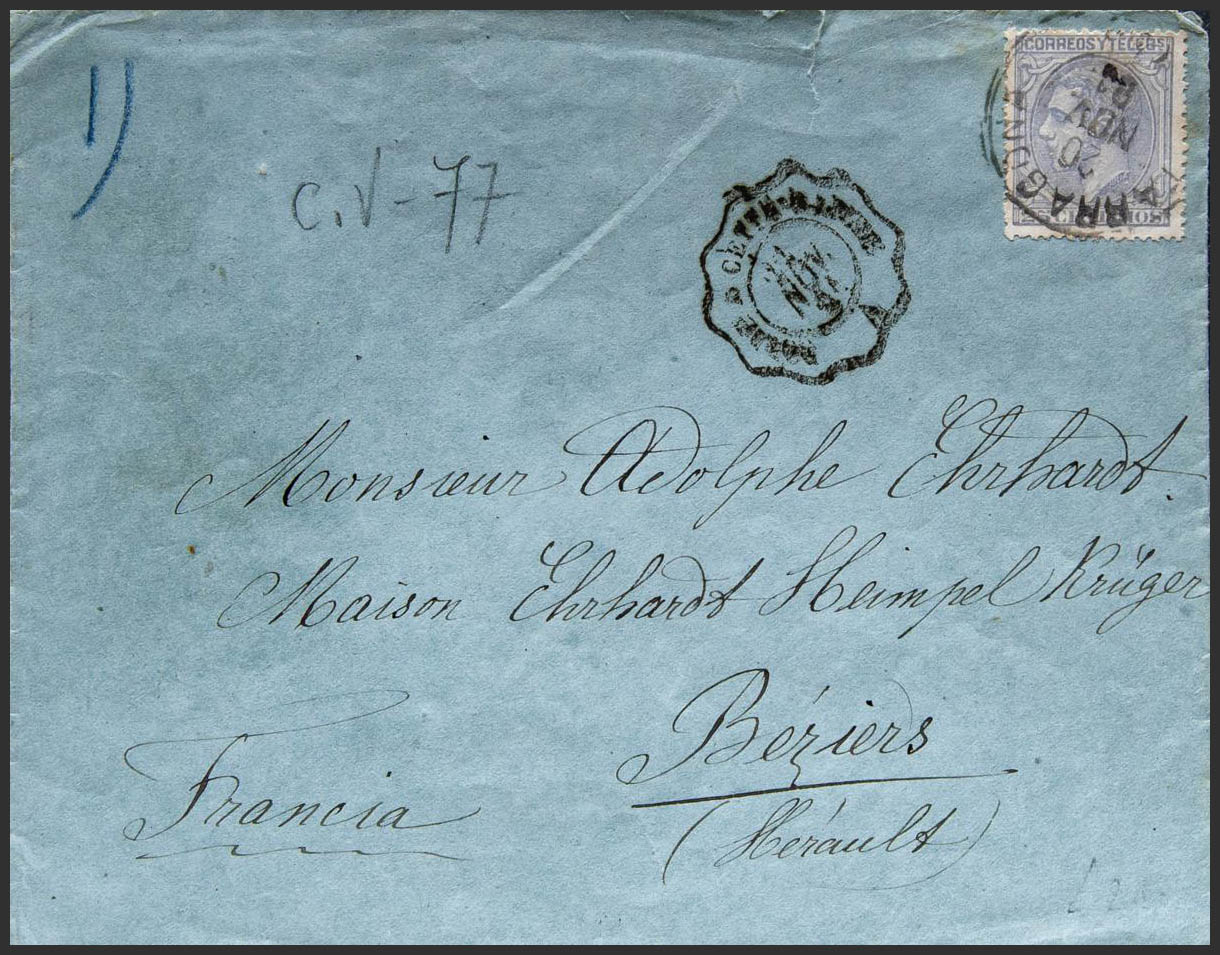 1)
C.V-77
CORREOS Y TELEGS
TARRAGONA
20
NOV
25 CENTIMOS
Monsieur Adolphe Ehrhardt.
Maison Ehrhardt Heimpel Krüger
Béziers
Francia
(Hérault)